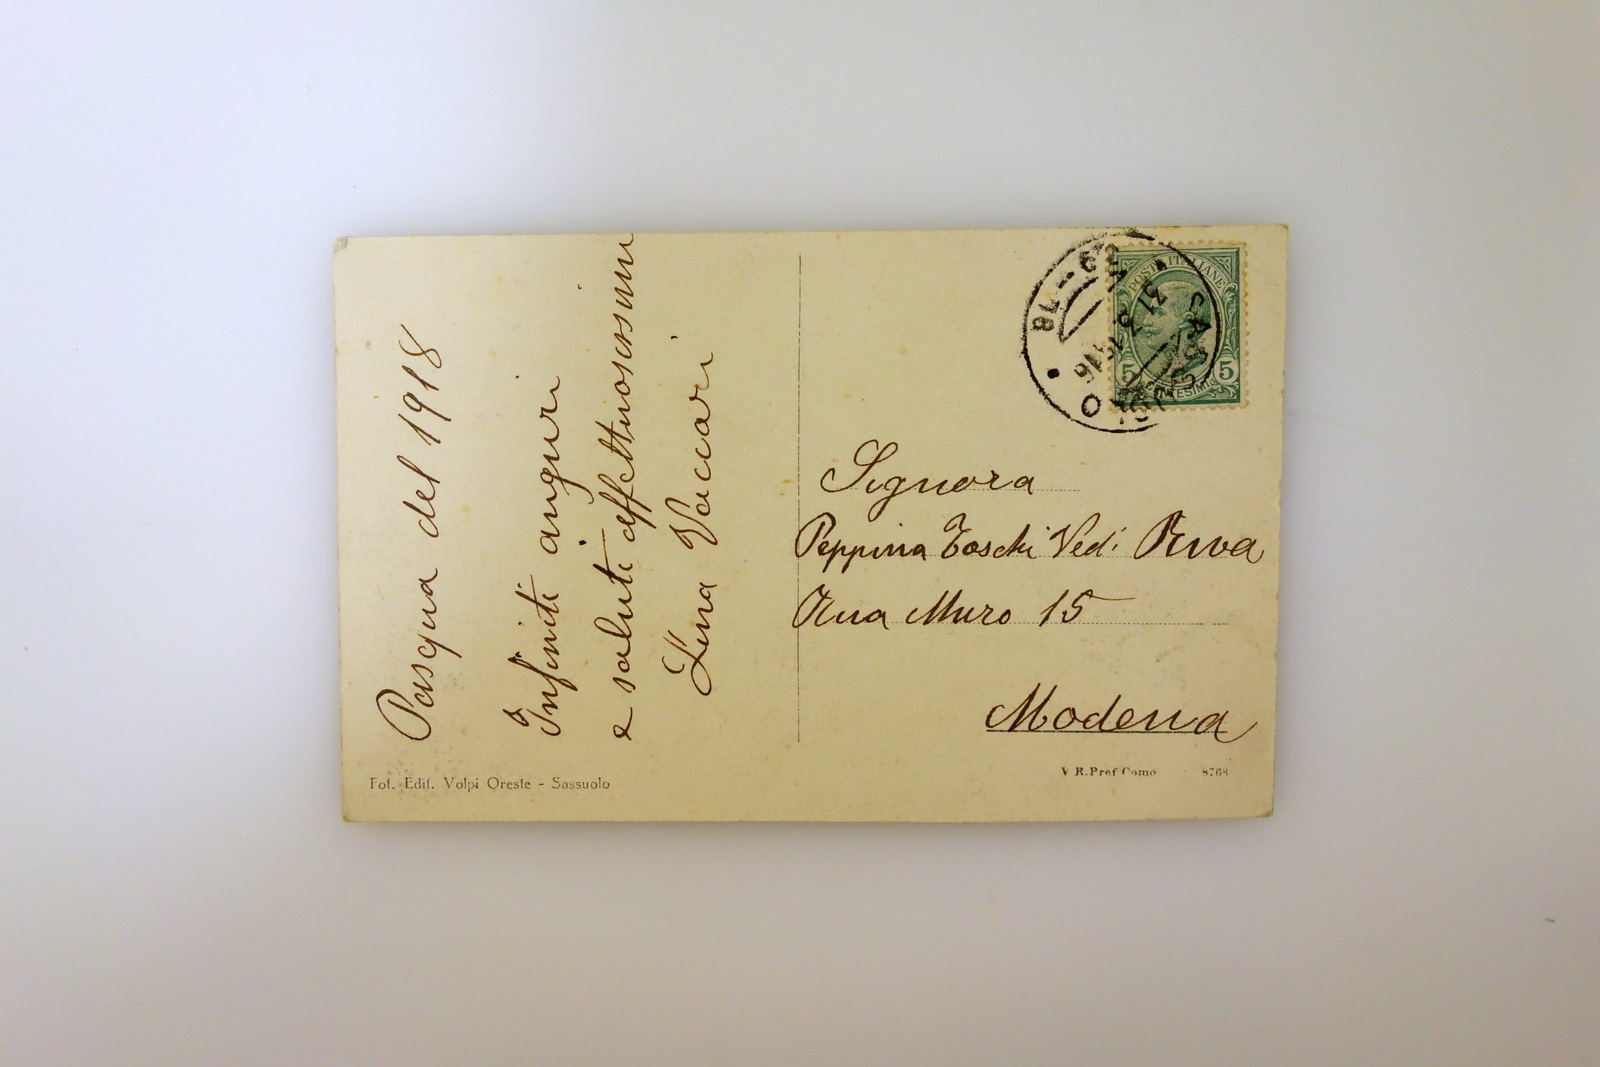 Pasqua del 1918
Infiniti auguri
e saluti affettuosissimi
Lina Vaccari
POSTE ITALIANE
5 CENTESIMI 5
SASSUOLO
31 3
Signora
Peppina Toschi Ved. Riva
Rua Muro 15
Modena
Fot. Edit. Volpi Oreste - Sassuolo
V R. Pref Como 8768